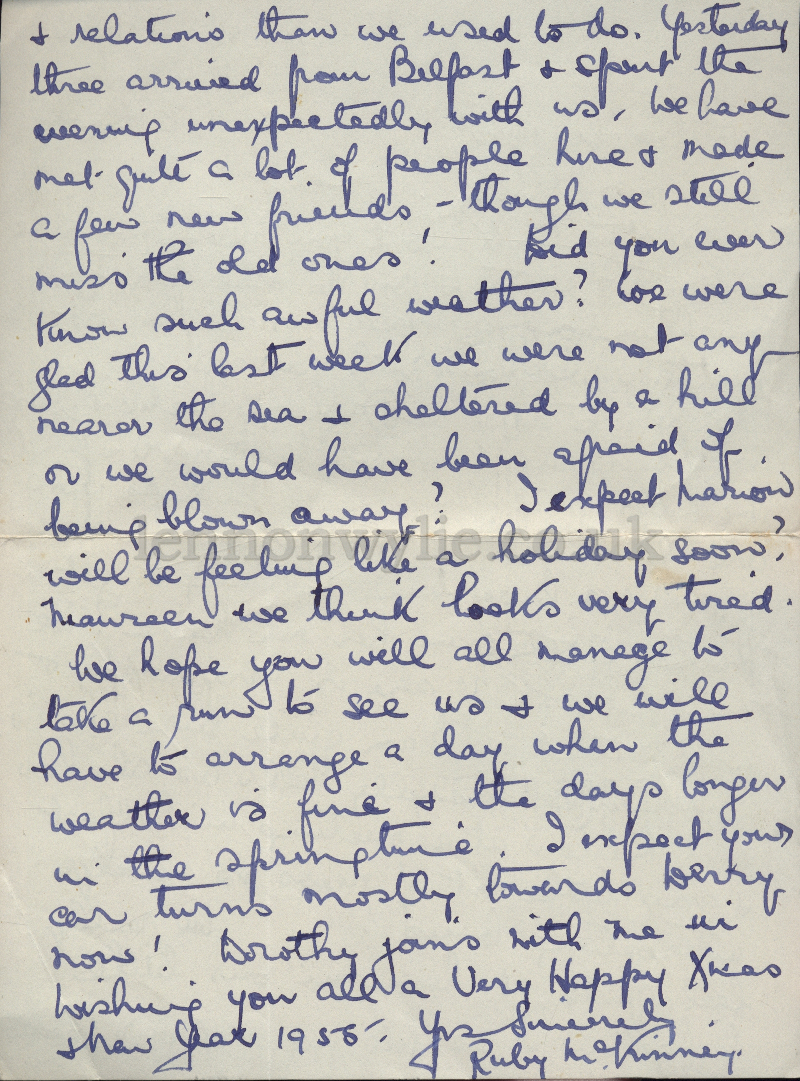 & relations than we used to do. Yesterday
three arrived from Belfast & spent the
evening unexpectedly with us. We have
met quite a lot of people here & made
a few new friends - though we still
miss the old ones! Did you ever
know such awful weather? We were
glad this last week we were not any
nearer the sea & sheltered by a hill
or we would have been afraid of
being blown away? I expect Marion
lennonwylie.co.uk
will be feeling like a holiday soon?
Maureen we think looks very tired.
We hope you will all manage to
take a run to see us & we will
have to arrange a day when the
weather is fine & the days longer
in the springtime. I expect your
car turns mostly towards Derry
now! Dorothy joins with me in
wishing you all a Very Happy Xmas
& New Year 1956. Yrs Sincerely
Ruby McKinney.